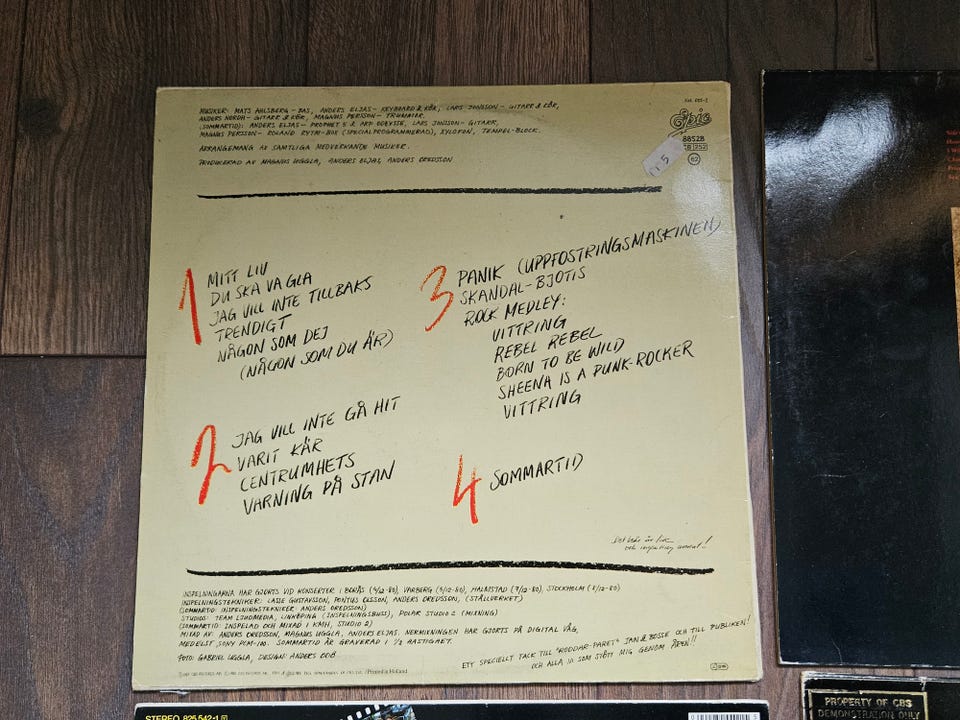 MUSIKER: MATS AHLSBERG - BAS, ANDERS ELJAS - KEYBOARD & KÖR, LARS JONSSON - GITARR & KÖR,
ANDERS NORDH - GITARR & KÖR, MAGNUS PERSSON - TRUMMOR.
(SOMMARTID): ANDERS ELJAS - PROPHET 5 & ARP ODYSSE, LARS JONSSON - GITARR,
MAGNUS PERSSON - ROLAND RYTM-BOX (SPECIALPROGRAMMERAD), XYLOFON, TEMPEL-BLOCK.
ARRANGEMANG AV SAMTLIGA MEDVERKANDE MUSIKER.
PRODUCERAD AV MAGNUS UGGLA, ANDERS ELJAS, ANDERS OREDSSON
Epic
88528
1:5
1 MITT LIV
DU SKA VA GLA
JAG VILL INTE TILLBAKS
TRENDIGT
NÅGON SOM DEJ
(NÅGON SOM DU ÄR)
2 JAG VILL INTE GÅ HIT
VARIT KÄR
CENTRUMHETS
VARNING PÅ STAN
3 PANIK (UPPFOSTRINGSMASKINEN)
SKANDAL-BJÖTIS
ROCK MEDLEY:
VITTRING
REBEL REBEL
BORN TO BE WILD
SHEENA IS A PUNK-ROCKER
VITTRING
4 SOMMARTID
Det här är live
och ingenting annat!
INSPELNINGARNA HAR GJORTS VID KONSERTER I BORÅS (4/12-80), VARBERG (5/12-80), HALMSTAD (7/12-80), STOCKHOLM (8/12-80)
INSPELNINGSTEKNIKER: LASSE GUSTAVSSON, PONTUS OLSSON, ANDERS OREDSSON, (STÅLVERKET)
(SOMMARTID: INSPELNINGSTEKNIKER: ANDERS OREDSSON)
STUDIOS: TEAM LJUDMEDIA, LINKÖPING (INSPELNINGSBUSS), POLAR STUDIO 2 (MIXNING)
(SOMMARTID: INSPELAD OCH MIXAD I KMH, STUDIO 2)
MIXAD AV: ANDERS OREDSSON, MAGNUS UGGLA, ANDERS ELJAS. NERMIXNINGEN HAR GJORTS PÅ DIGITAL VÄG,
MEDELST SONY PCM-100. SOMMARTID ÄR GRAVERAD I 1/2 HASTIGHET.
FOTO: GABRIEL UGGLA, DESIGN: ANDERS BÖÖ
ETT SPECIELLT TACK TILL "RODDAR-PARET" JAN & BOSSE OCH TILL PUBLIKEN!
OCH ALLA NI SOM STÖTT MIG GENOM ÅREN!!
Printed in Holland
STEREO 825 542-1
PROPERTY OF CBS
DEMONSTRATION ONLY